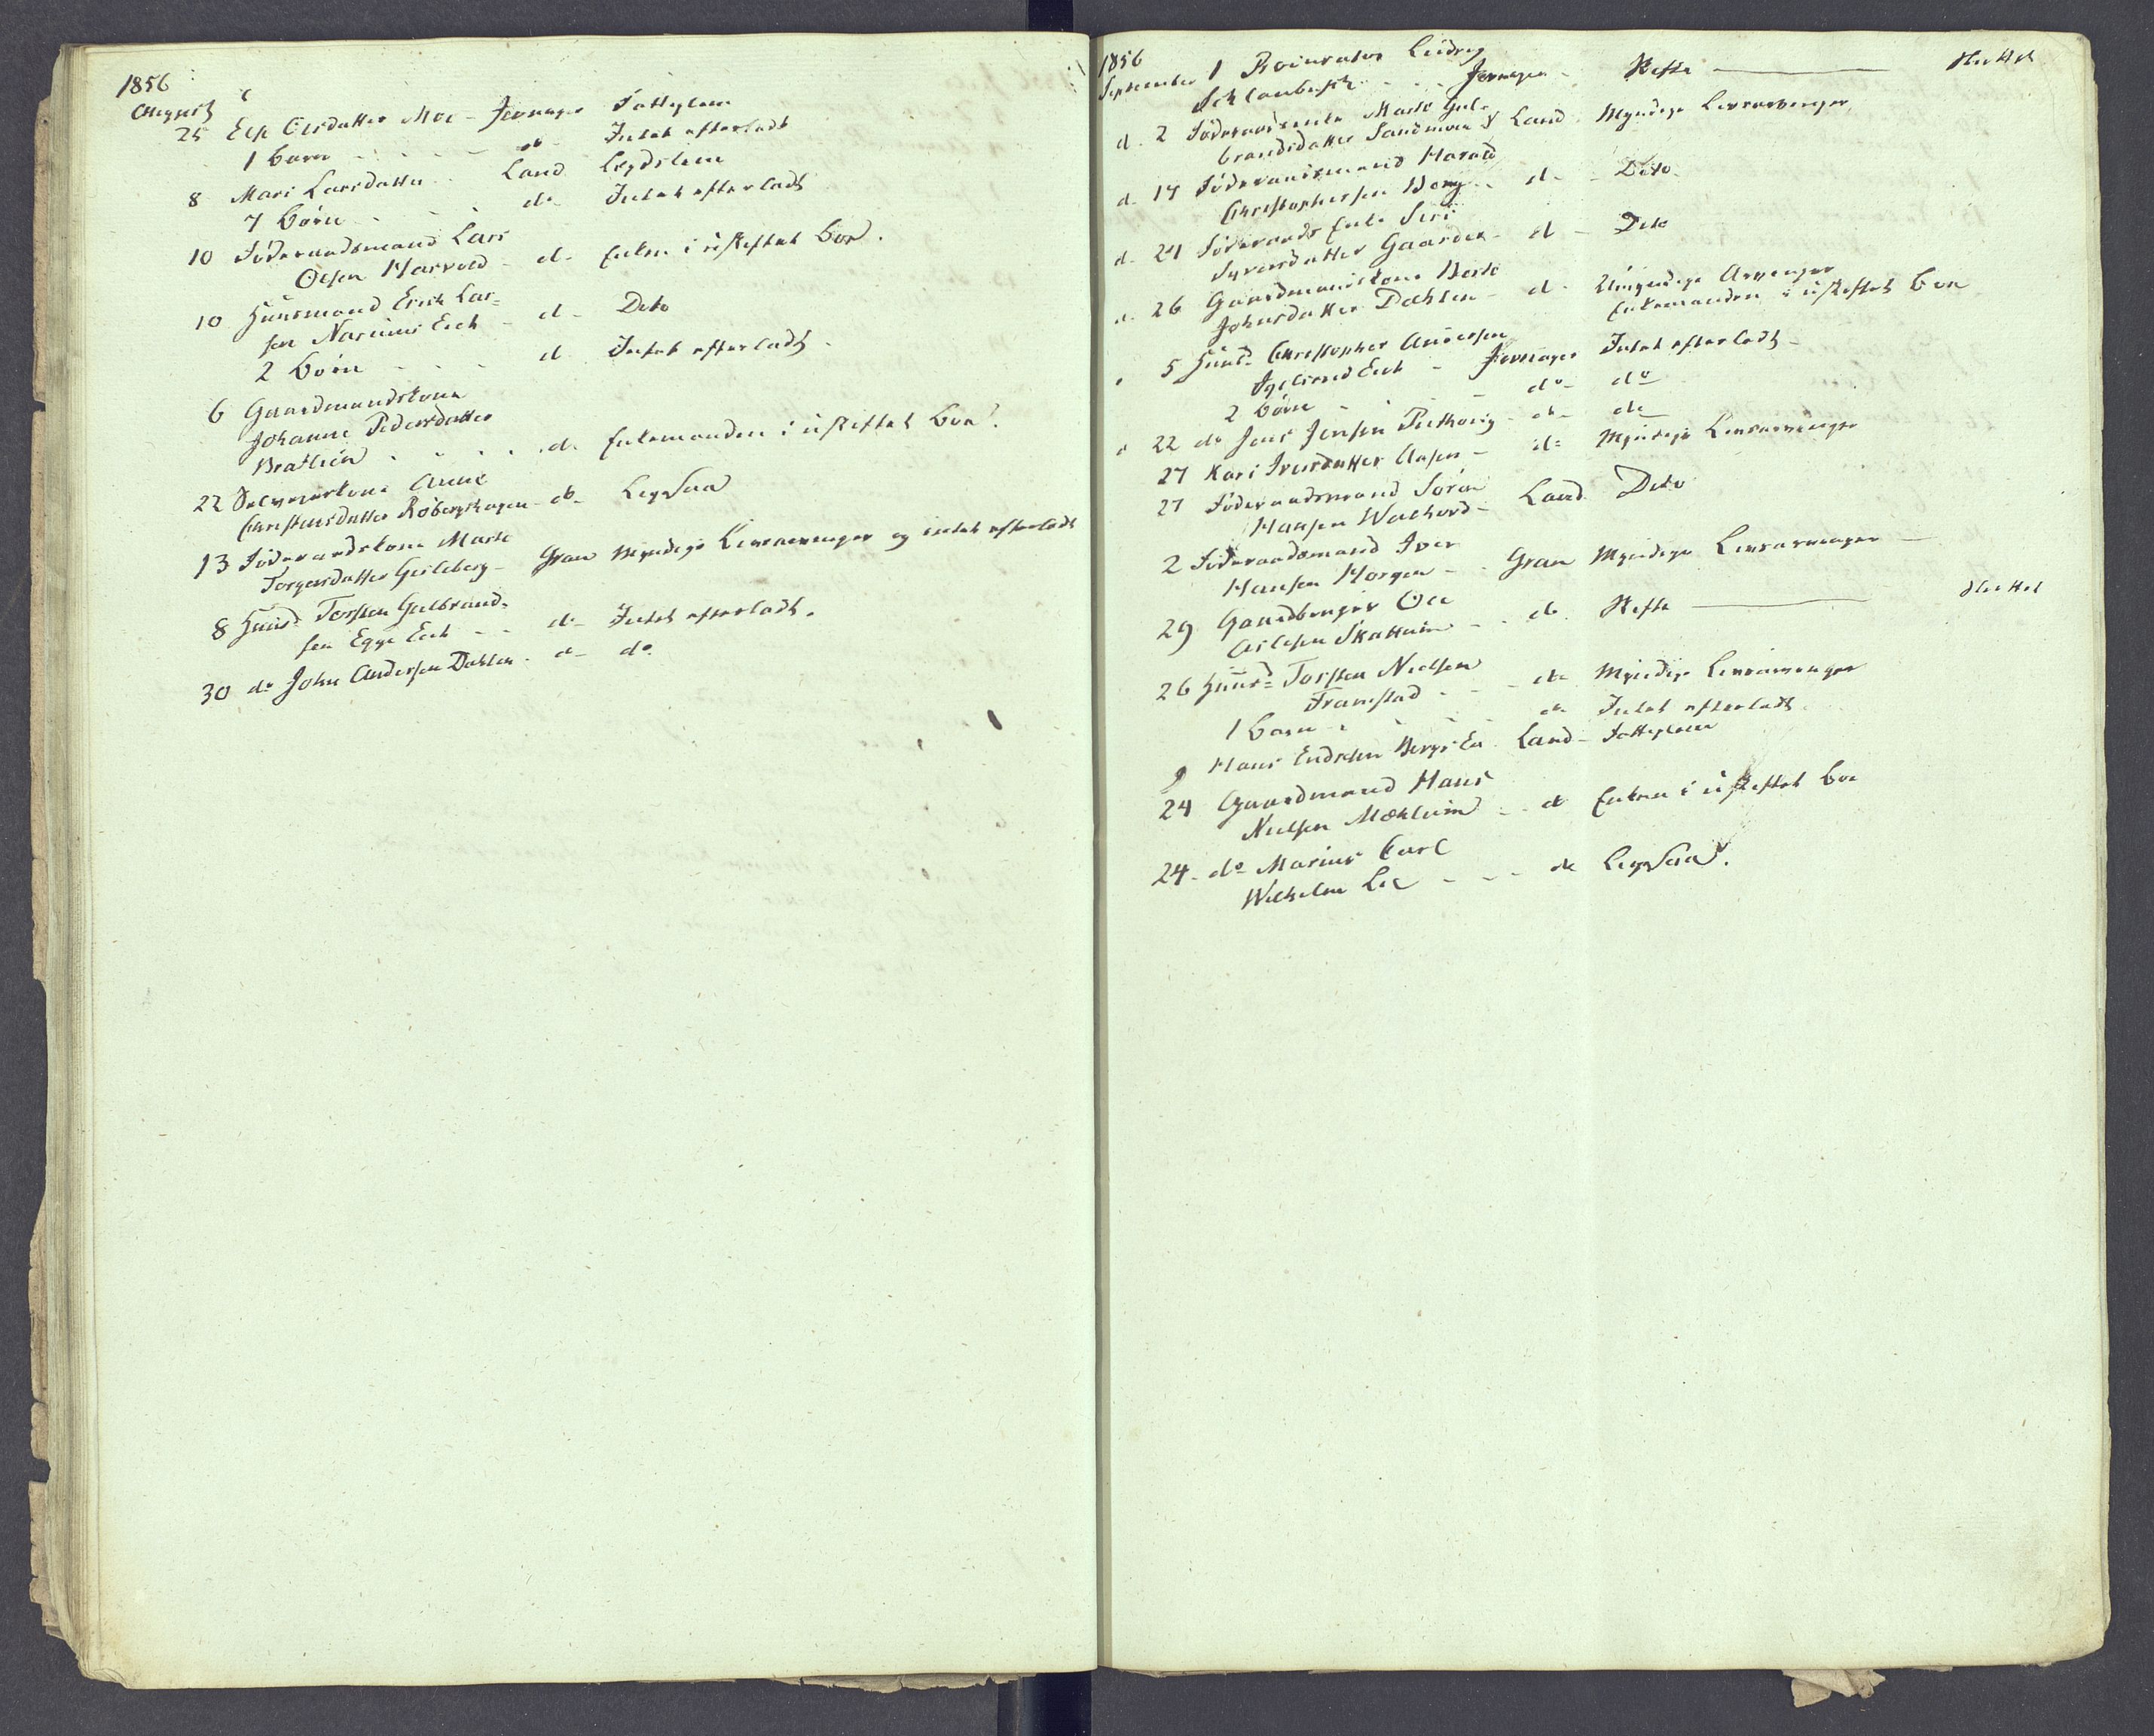 1856
August
25 Else Olsdatter Moe - Jevnager Fattiglem
1 barn - - - - do Intet efterladt
8 Mari Larsdatter - Land Legdslem
7 børn - - - do Intet efterladt
10 Føderaadsmand Lars
Olsen Harvold - do Enken i uskiftet boe.
10 Huusmand Erik Lar=
sen Narum Eiet - do - Dito
2 børn - - - do Intet efterladt.
6 Gaardmandskone
Johanne Pedersdatter
Brathlien - - - do Enkemanden i uskiftet boe.
22 Selveierkone Anne
Christensdatter Røbergshagen - do Ligesaa
13 Føderaadskone Marte
Torgersdatter Gisleberg - Gran Myndige Livsarvinger og intet efterladt
8 Huusd Torsten Gulbrand=
sen Egge Eiet - - do - Intet efterladt.
30 do John Andersen Dahlen - do - do
1856
September 1 Procurator Ludvig
- - - Jevnager - Skifte - Sluttet
d. 2 Føderaadsenke Marte Gul=
brandsdatter Sandmoen Land Myndige Livsarvinger
d. 17 Føderaadsmand Harald
Christophersen Berg - - do - Dito
d. 24 Føderaads Enke Siri
Syversdatter Gaarder - do - Dito
d. 26 Gaardmandskone Berte
Johnsdatter Dæhlen - do - Umyndige Arvinger
Enkemanden i uskiftet boe
5 Huusd Christopher Andersen
Eiet - Jevnager Intet efterladt -
2 børn - - - do - do
22 do Jens Jensen - do - do
27 Kari Iversdatter Aasen - do Myndige Livsarvinger
27 Føderaadsmand Søren
Hansen - Land Dito
2 Føderaadsmand Iver
Hansen Horgen - - Gran Myndige Livsarvinger -
29 Gaardbruger Ole
Olsen Skattum - - do Skifte - Sluttet
26 Huusd= Torsten Nielsen
Framstad - - - do Myndige Livsarvinger
1 barn - - - do Intet efterladt.
9 Hans Endresen Berge Ei Land - Fattiglem
24 Gaardmand Hans
Nielsen Mæhlum - - do Enken i uskiftet boe
24 - do Marius Carl
Wilhelm Lie - - - do Ligesaa.